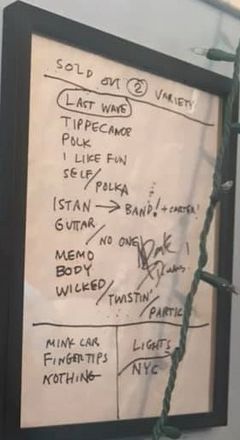 SOLD OUT ② VARIETY
LAST WAVE
TIPPECANOE
POLK
I LIKE FUN
SELF/POLKA
ISTAN → BAND! + CARTER!
GUITAR/NO ONE
MEMO
BODY
WICKED/TWISTIN'/PARTIC
MINK CAR
FINGERTIPS
NOTHING
LIGHTS
NYC